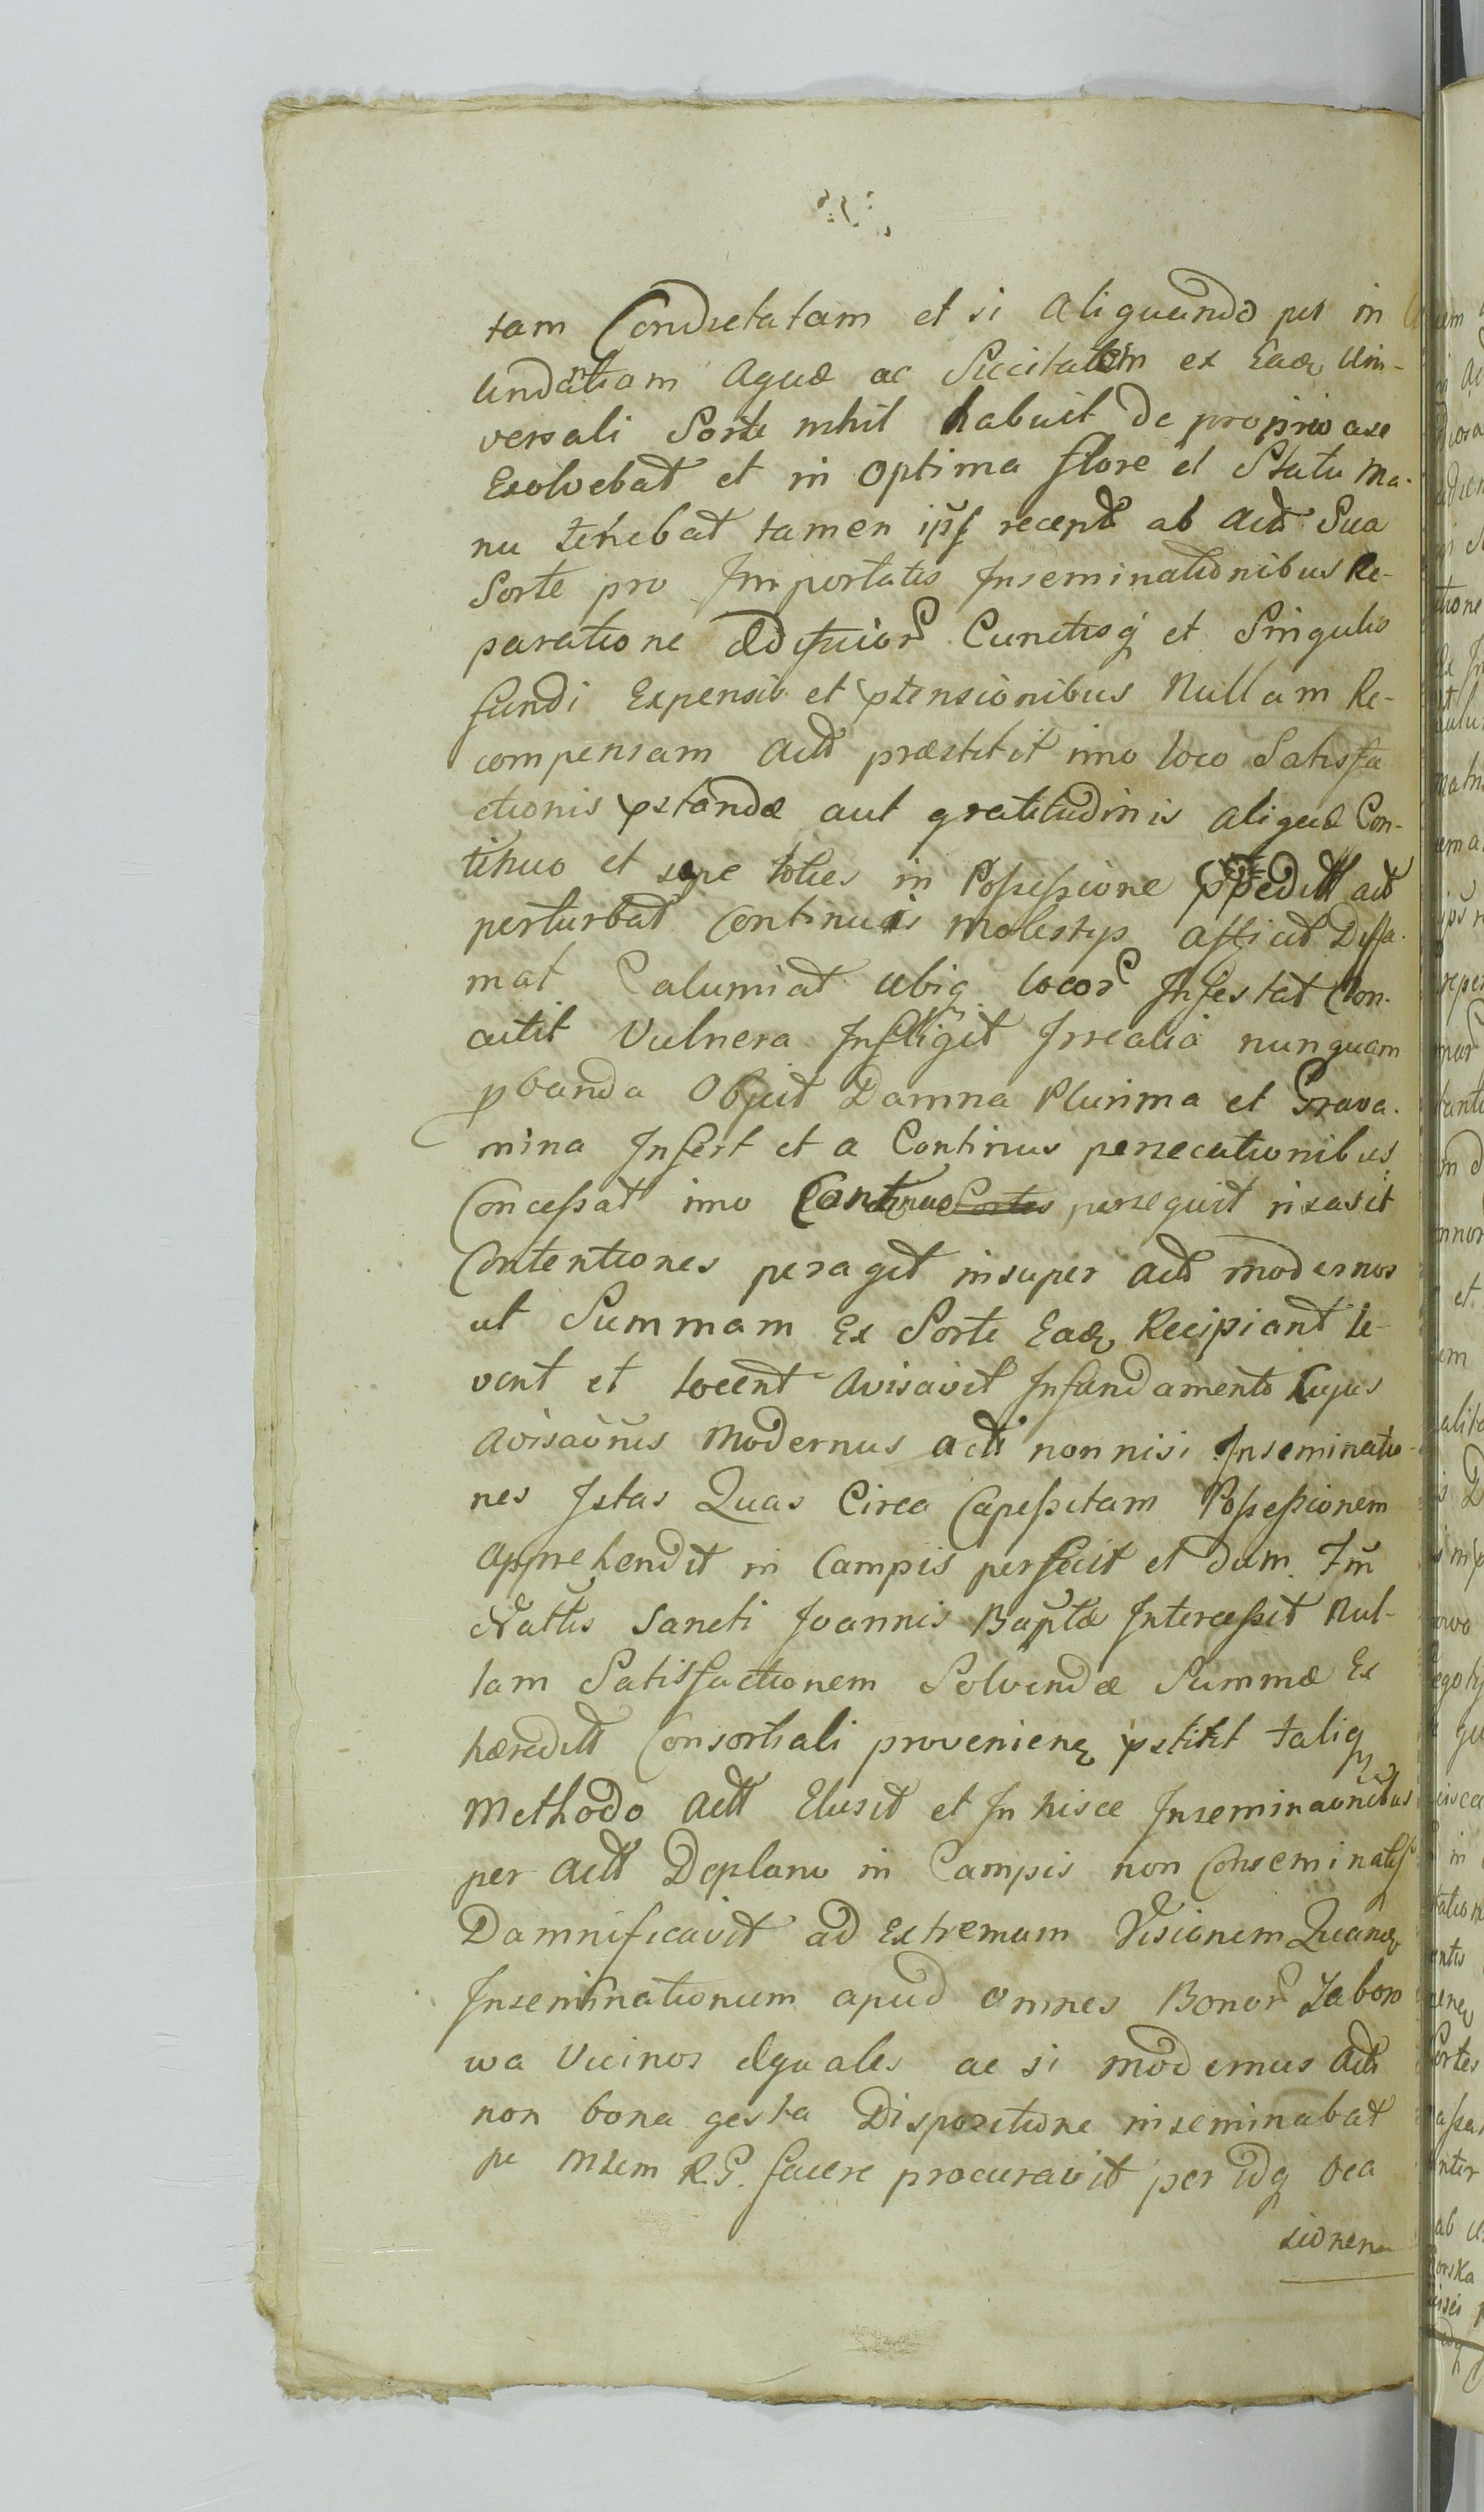 tam Condictatam et si aliquando per in
undationam aquæ ac Siccitatem ex Eadq Uni-
versali Sorte nihil habuit de proprio aere
Exolvebat et in optima flore et Statu ma-
nu tenebat tamen ips recept ab actt Sua
Sorte pro Importatis Inseminationibus Re-
paratione Ædificior Cunctisq et Singulis
fundi Expensis et ptensionibus Nullam Re-
compensam actt præstitit imo loco Satisfa
ctionis pstandæ aut gratitudinis aliquæ Con-
tinuo et sepe toties in Possessione actt
perturbat Continuis molestys afficit Diffa-
mat Calumiat ubiq locor Infestat Con-
cutit Vulnera Infligit Irrealia nunquam
pbanda Objicit Damna Plurima et Grava-
mina Infert et a Continuis persecutionibus
Concessat imo Continuo persequit
Contentiones peragit insuper actt modernos
ut Summam Ex Sorte Eadq Recipiant le-
vent et locent avisavit Infundamento Cujus
avisaõnis Modernus actt non nisi Inseminatio-
nes Istas Quas Circa Capessitam Possessionem
apprehendit in Campis perfecit et dum
Nattis Sancti Joannis Baptæ Intercessit Nul-
lam Satisfactionem Solvendæ Summæ Ex
hæreditt Consortiali provenienq pstitit taliq
Methodo actt Elusit et In hisce Inseminaõnibus
per actt Deplano in Campis non Conseminatis
Damnificavit ad Extremam Visionem Quanq
Inseminationum apud omnes Bonor Zaboro
wa Vicinos Equales ac si modernus actt
non bona gesta Dispositione inseminabat
R.G. facere procuravit per idq oca
sionem